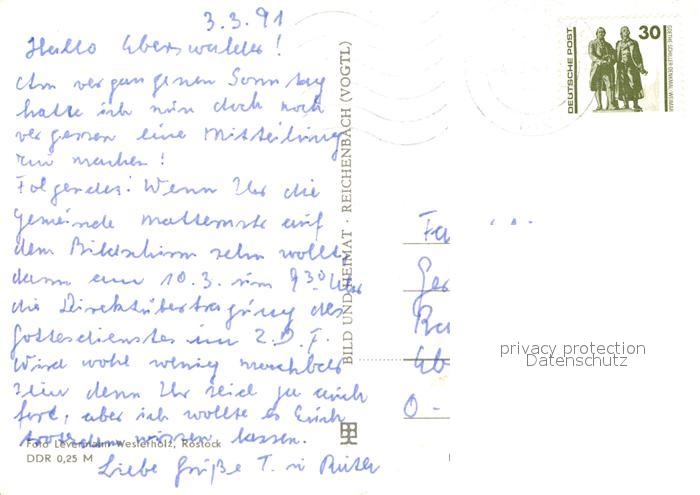 3.3.91
Hallo Eberswalder!
Am vergangenen Sonntag
hatte ich nun doch noch
vergessen eine Mitteilung
zu machen!
Folgendes: Wenn Ihr die
Gemeinde auf
dem Bildschirm sehn wollt
dann am 10.3. um 9³⁰ Uhr
die Direktübertragung des
Gottesdienstes im Z.D.F.
Wird wohl wenig machbar
sein denn Ihr seid ja auch
fort, aber ich wollte es Euch
trotzdem wissen lassen.
Liebe Grüße T. u
Foto Levermann-Westerholz, Rostock
DDR 0,25 M
BILD UND HEIMAT · REICHENBACH (VOGTL)
DEUTSCHE POST
30
GOETHE-SCHILLER-DENKMAL WEIMAR
Fa
Ge
Eb
O-
privacy protection
Datenschutz